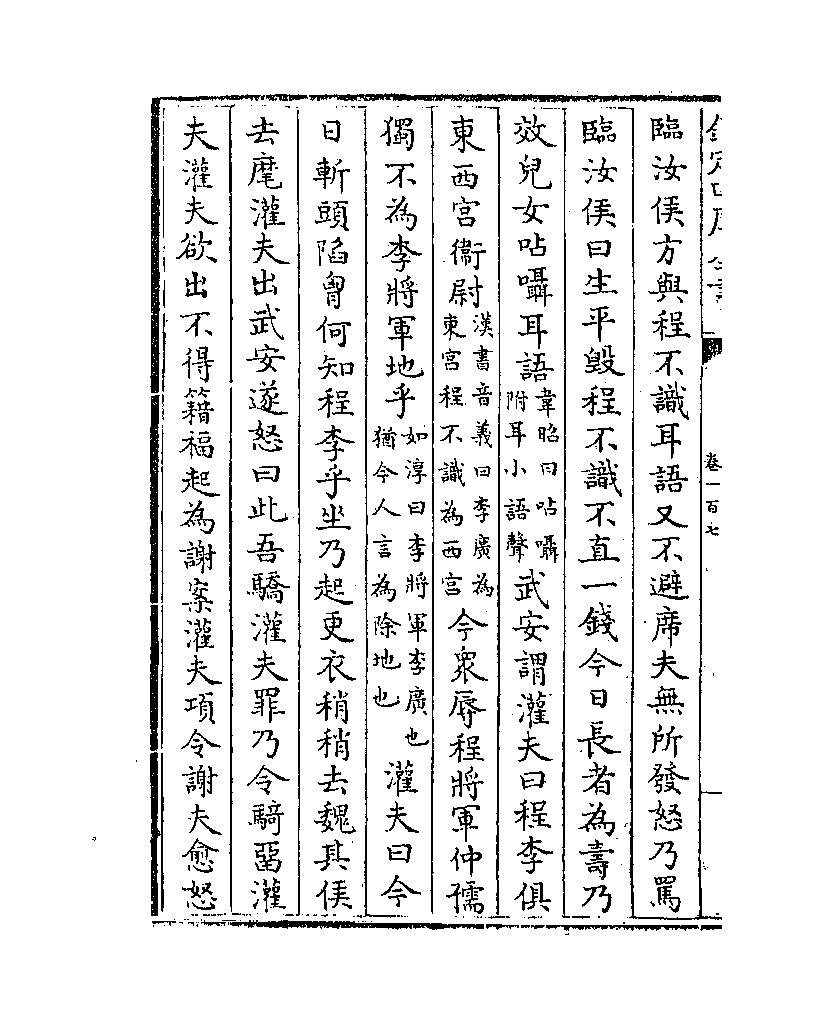 欽定四庫全書
卷一百七
臨汝侯方與程不識耳語又不避席夫無所發怒乃罵
臨汝侯曰生平毀程不識不直一錢今日長者為壽乃
效兒女呫囁耳語韋昭曰呫囁附耳小語聲武安謂灌夫曰程李俱
東西宮衞尉漢書音義曰李廣為東宮程不識為西宮今衆辱程將軍仲孺
獨不為李將軍地乎如淳曰李將軍李廣也猶今人言為除地也灌夫曰今
日斬頭陷胷何知程李乎坐乃起更衣稍稍去魏其侯
去麾灌夫出武安遂怒曰此吾驕灌夫罪乃令騎留灌
夫灌夫欲出不得籍福起為謝案灌夫項令謝夫愈怒